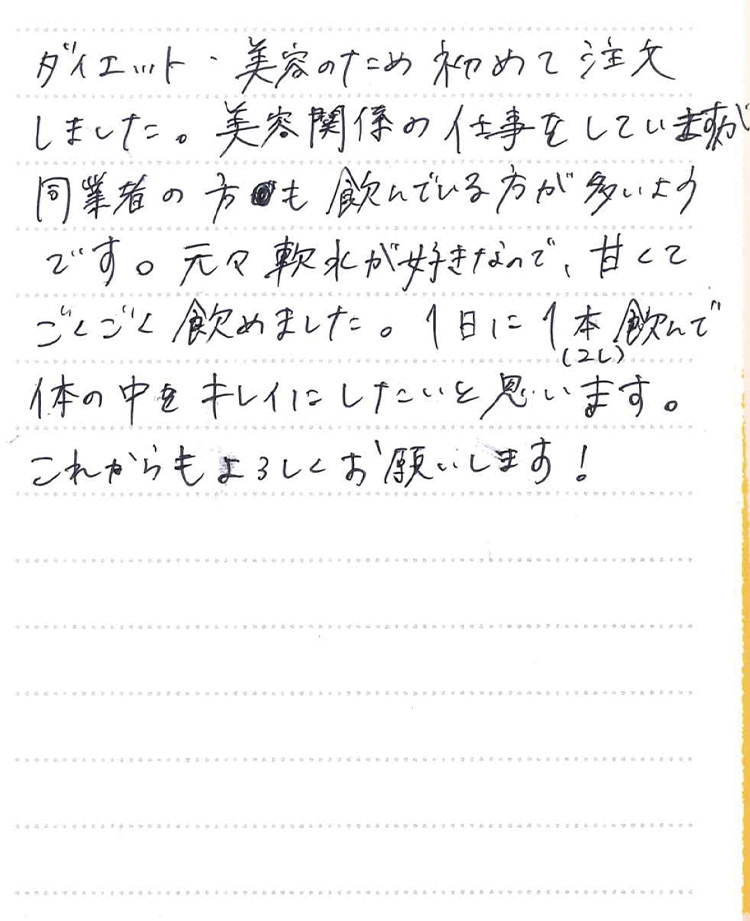 ダイエット・美容のため初めて注文
しました。美容関係の仕事をしていますが
同業者の方も飲んでいる方が多いよう
です。元々軟水が好きなので、甘くて
ごくごく飲めました。1日に1本飲んで
(2L)
体の中をキレイにしたいと思います。
これからもよろしくお願いします!